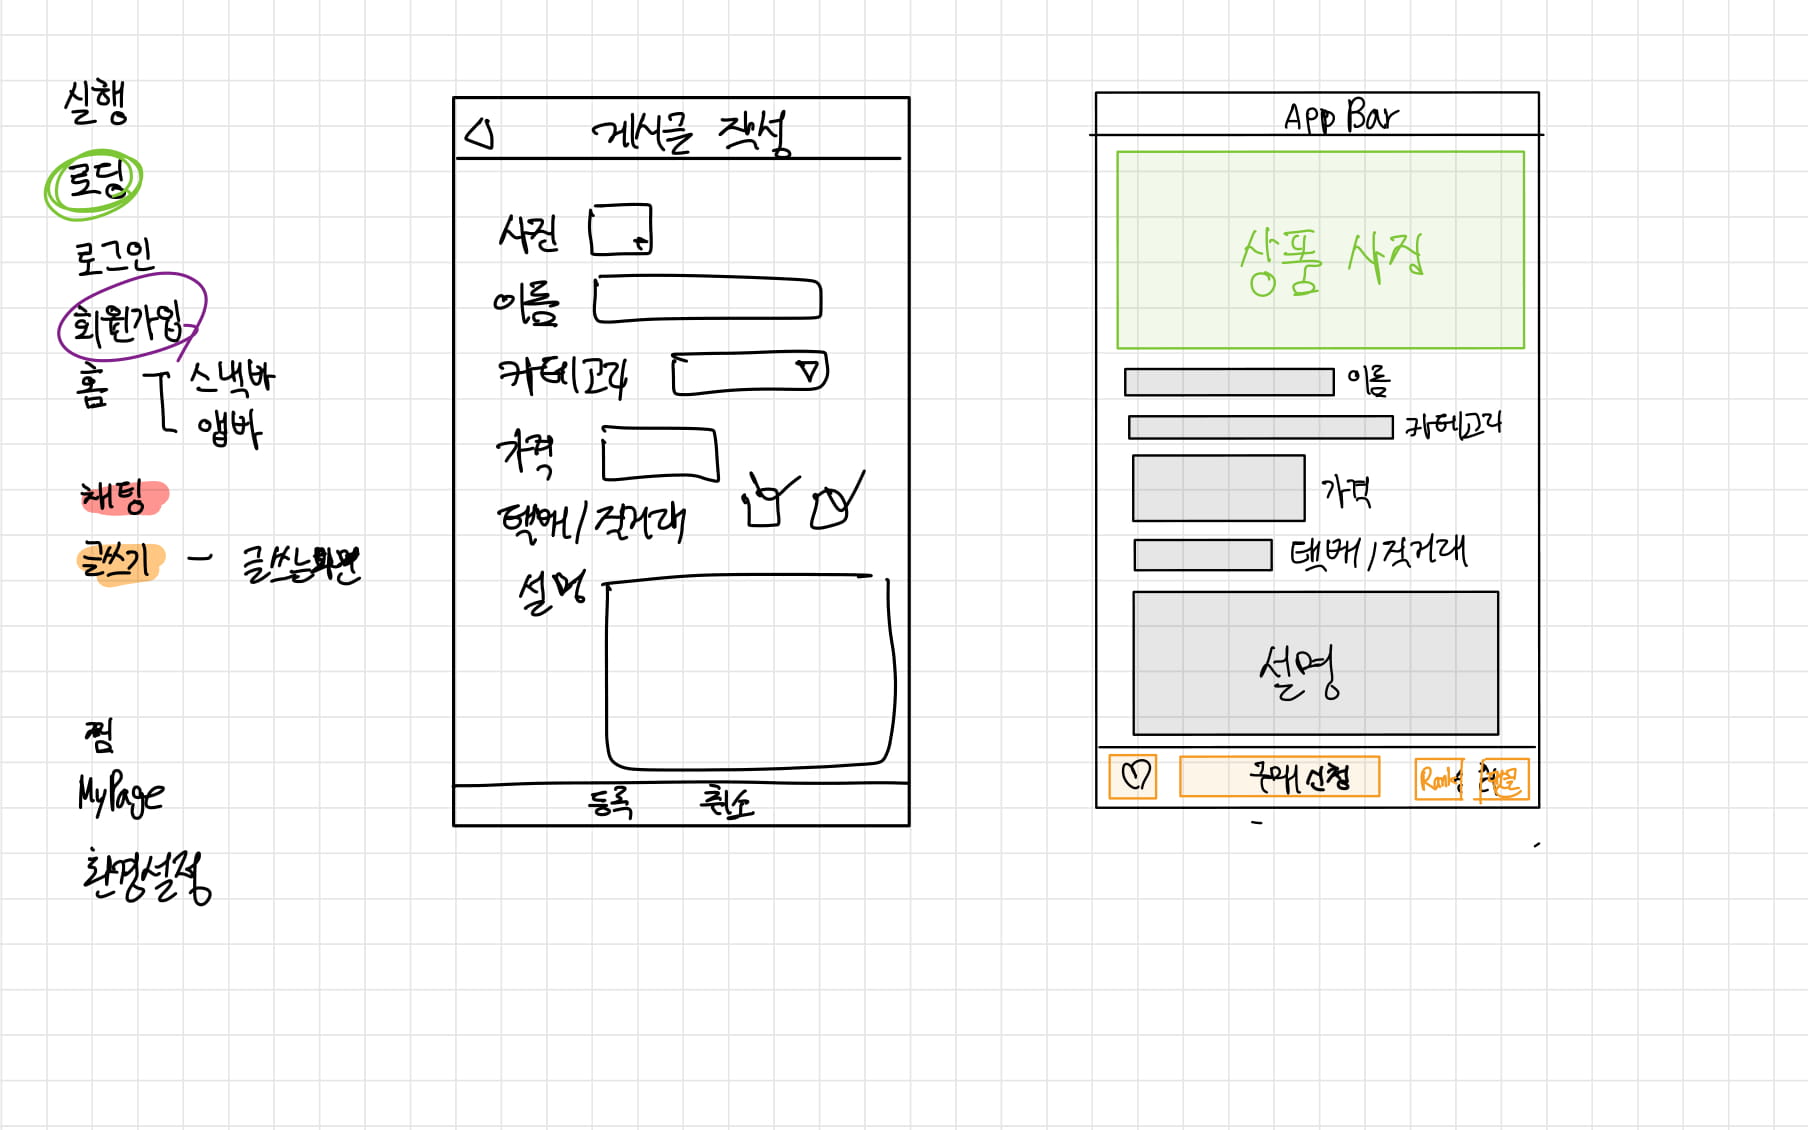 실행
로딩
로그인
회원가입
홈
스낵바
앱바
채팅
글쓰기 - 글쓰는화면
찜
MyPage
환경설정
게시글 작성
사진
이름
카테고리
가격
택배/직거래
설명
등록 취소
App Bar
상품 사진
이름
카테고리
가격
택배/직거래
설명
구매 신청